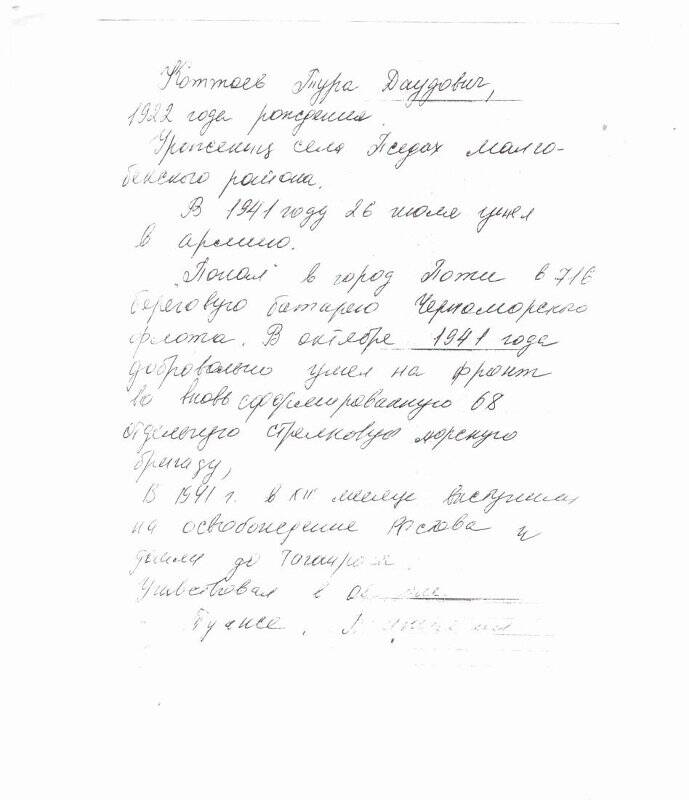 Коттоев Тура Даудович,
1922 года рождения.
Уроженец села Пседах Малго-
бекского района.
В 1941 году 26 июля ушел
в армию.
"Попал" в город Поти в 716
береговую батарею Черноморского
флота. В октябре 1941 года
добровольно ушел на фронт
во вновь сформированную 68
отдельную стрелковую морскую
бригаду,
В 1941 г. в XII месяце выступили
на освобождение Ростова и
дошли до Таганрога.
Участвовал в
Туапсе,